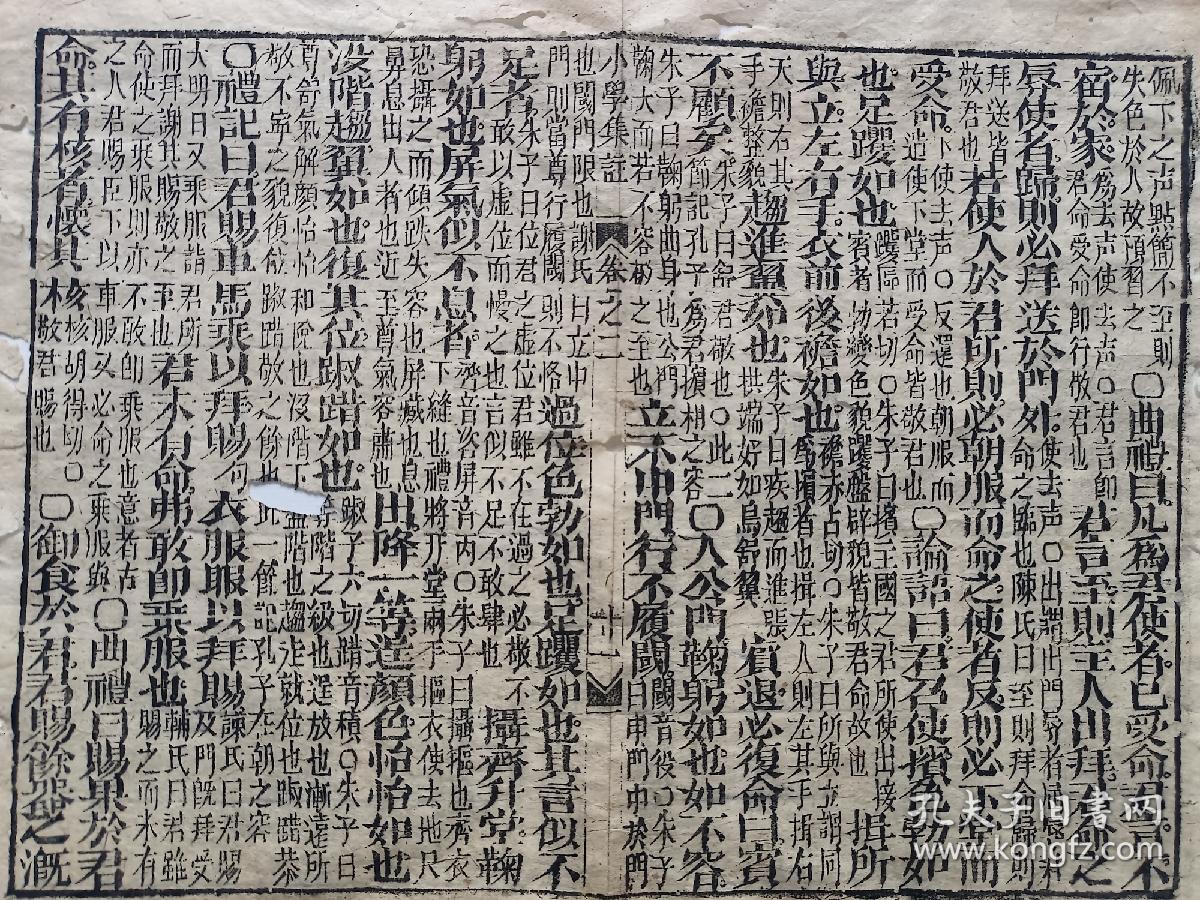 佩下之声點簡不至則失色於人故預習之○曲禮曰凡爲君使者已受命君言不
宿於家爲去声使去声○君言即君命受命即行敬君也君言至則主人出拜君言之
辱使者歸則必拜送於門外使去声○出謂出門辱者屈辱君命之臨也陳氏曰至則拜命歸則
拜送皆敬君也若使人於君所則必朝服而命之使者反則必下堂而
受命下使去声○反還也朝服而造使下堂而受命皆敬君也○論語曰君召使擯色勃如
也足躩如也躩區若切○朱子曰擯主國之君所使出接賓者勃變色貌躩盤辟貌皆敬君命故也揖所
與立左右手衣前後襜如也襜赤占切○朱子曰所與立謂同爲擯者也揖左人則左其手揖右
人則右其手襜整貌趨進翼如也朱子曰疾趨而進張拱端好如鳥舒翼賓退必復命曰賓
不顧矣朱子曰紓君敬也○此一節記孔子爲君擯相之容○入公門鞠躬如也如不容
朱子曰鞠躬曲身也公門高大而若不容敬之至也立不中門行不履閾閾音役○朱子曰中門中於門
小學集註 卷之二
也閾門限也謝氏曰立中門則當尊行履閾則不恪過位色勃如也足躩如也其言似不
足者朱子曰位君之虛位君雖不在過之必敬不敢以虛位而慢之也言似不足不敢肆也攝齊升堂鞠
躬如也屏氣似不息者齊音咨屏音丙○朱子曰攝摳也齊衣下縫也禮將升堂兩手摳衣使去地尺
恐攝之而傾跌失容也屏藏也息鼻息出入者也近至尊氣容肅也出降一等逞顏色怡怡如也
沒階趨翼如也復其位踧踖如也踧子六切踖音積○朱子曰等階之級也逞放也漸遠所
尊舒氣解顏怡怡和悅也沒階下盡階也趨走就位也踧踖恭敬不寧之貌復位踧踖敬之餘也此一節記孔子在朝之容
○禮記曰君賜車馬乘以拜賜句衣服服以拜賜陳氏曰君賜及門既拜受
大明日又乘服詣君所而拜謝其賜敬之至也君未有命弗敢即乘服也輔氏曰君雖賜之而未有
命使之乘服則亦不敢即乘服也意者古之人君賜臣下以車服又必命之乘服與○曲禮曰賜果於君
命其有核者懷其核核胡得切○敬君賜也○御食於君君賜餘器之溉
孔夫子旧书网
www.kongfz.com